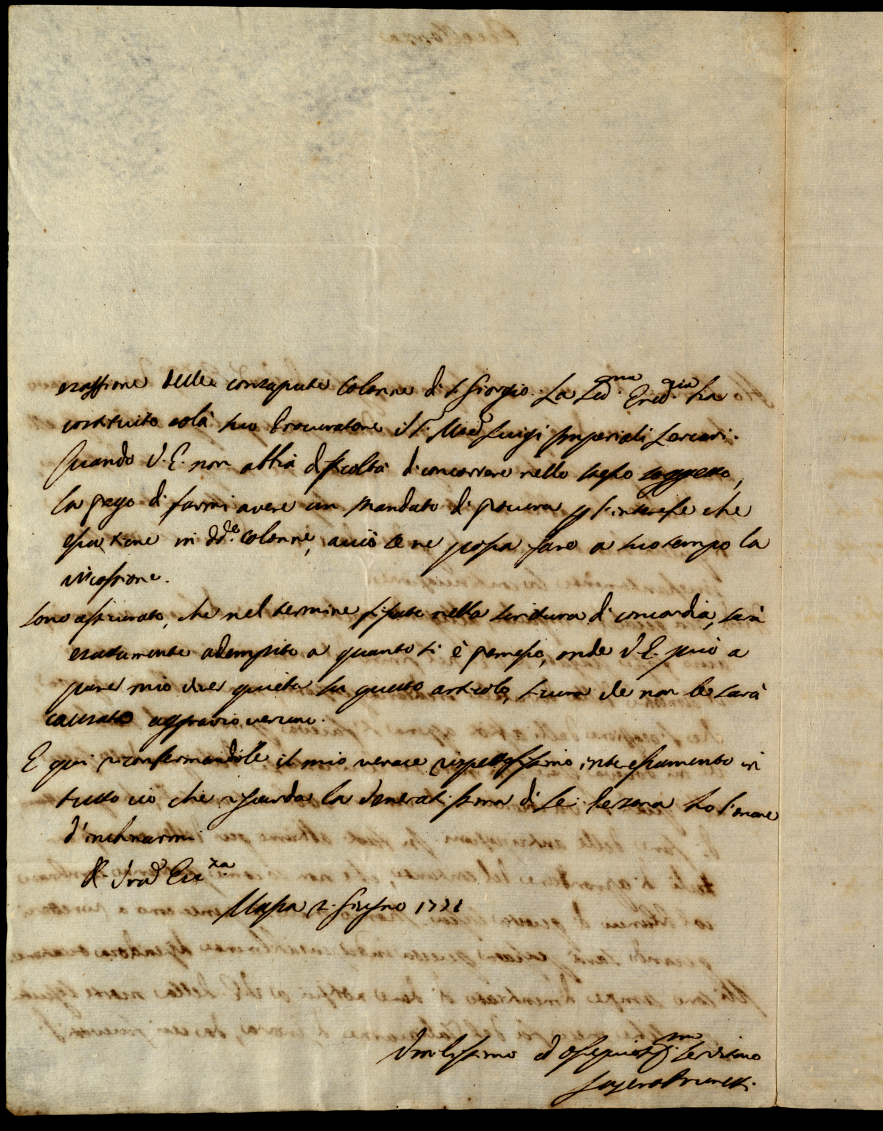 esazione delle consapute Colonne di S. Giorgio. La Ecc.ma Ered.ria ha
costituito colà suo Procuratore il S. Luigi Imperiali Lercari.
Quando V. E. non abbia difficoltà di concorrere nello stesso soggetto,
la prego di farmi avere un Mandato di procura p l'interesse che
essa tiene in dd.e Colonne, acciò se ne possa fare a suo tempo la
riscossione.
Sono assicurato, che nel termine fissato nella scrittura di concordia, sarà
esattamente adempito a quanto si è promesso, onde V. E. può a
parer mio viver quieta su questo articolo, sicura che non le sarà
causato aggravio veruno.
E qui riconfermandole il mio verace rispettosissimo interessamento in
tutto ciò che riguarda la veneratissima di Lei Persona ho l'onore
d'inchinarmi
Di Vra Ecc.za
Massa 2. Giugno 1771
Umilissimo ed ossequiosis.mo Servitore